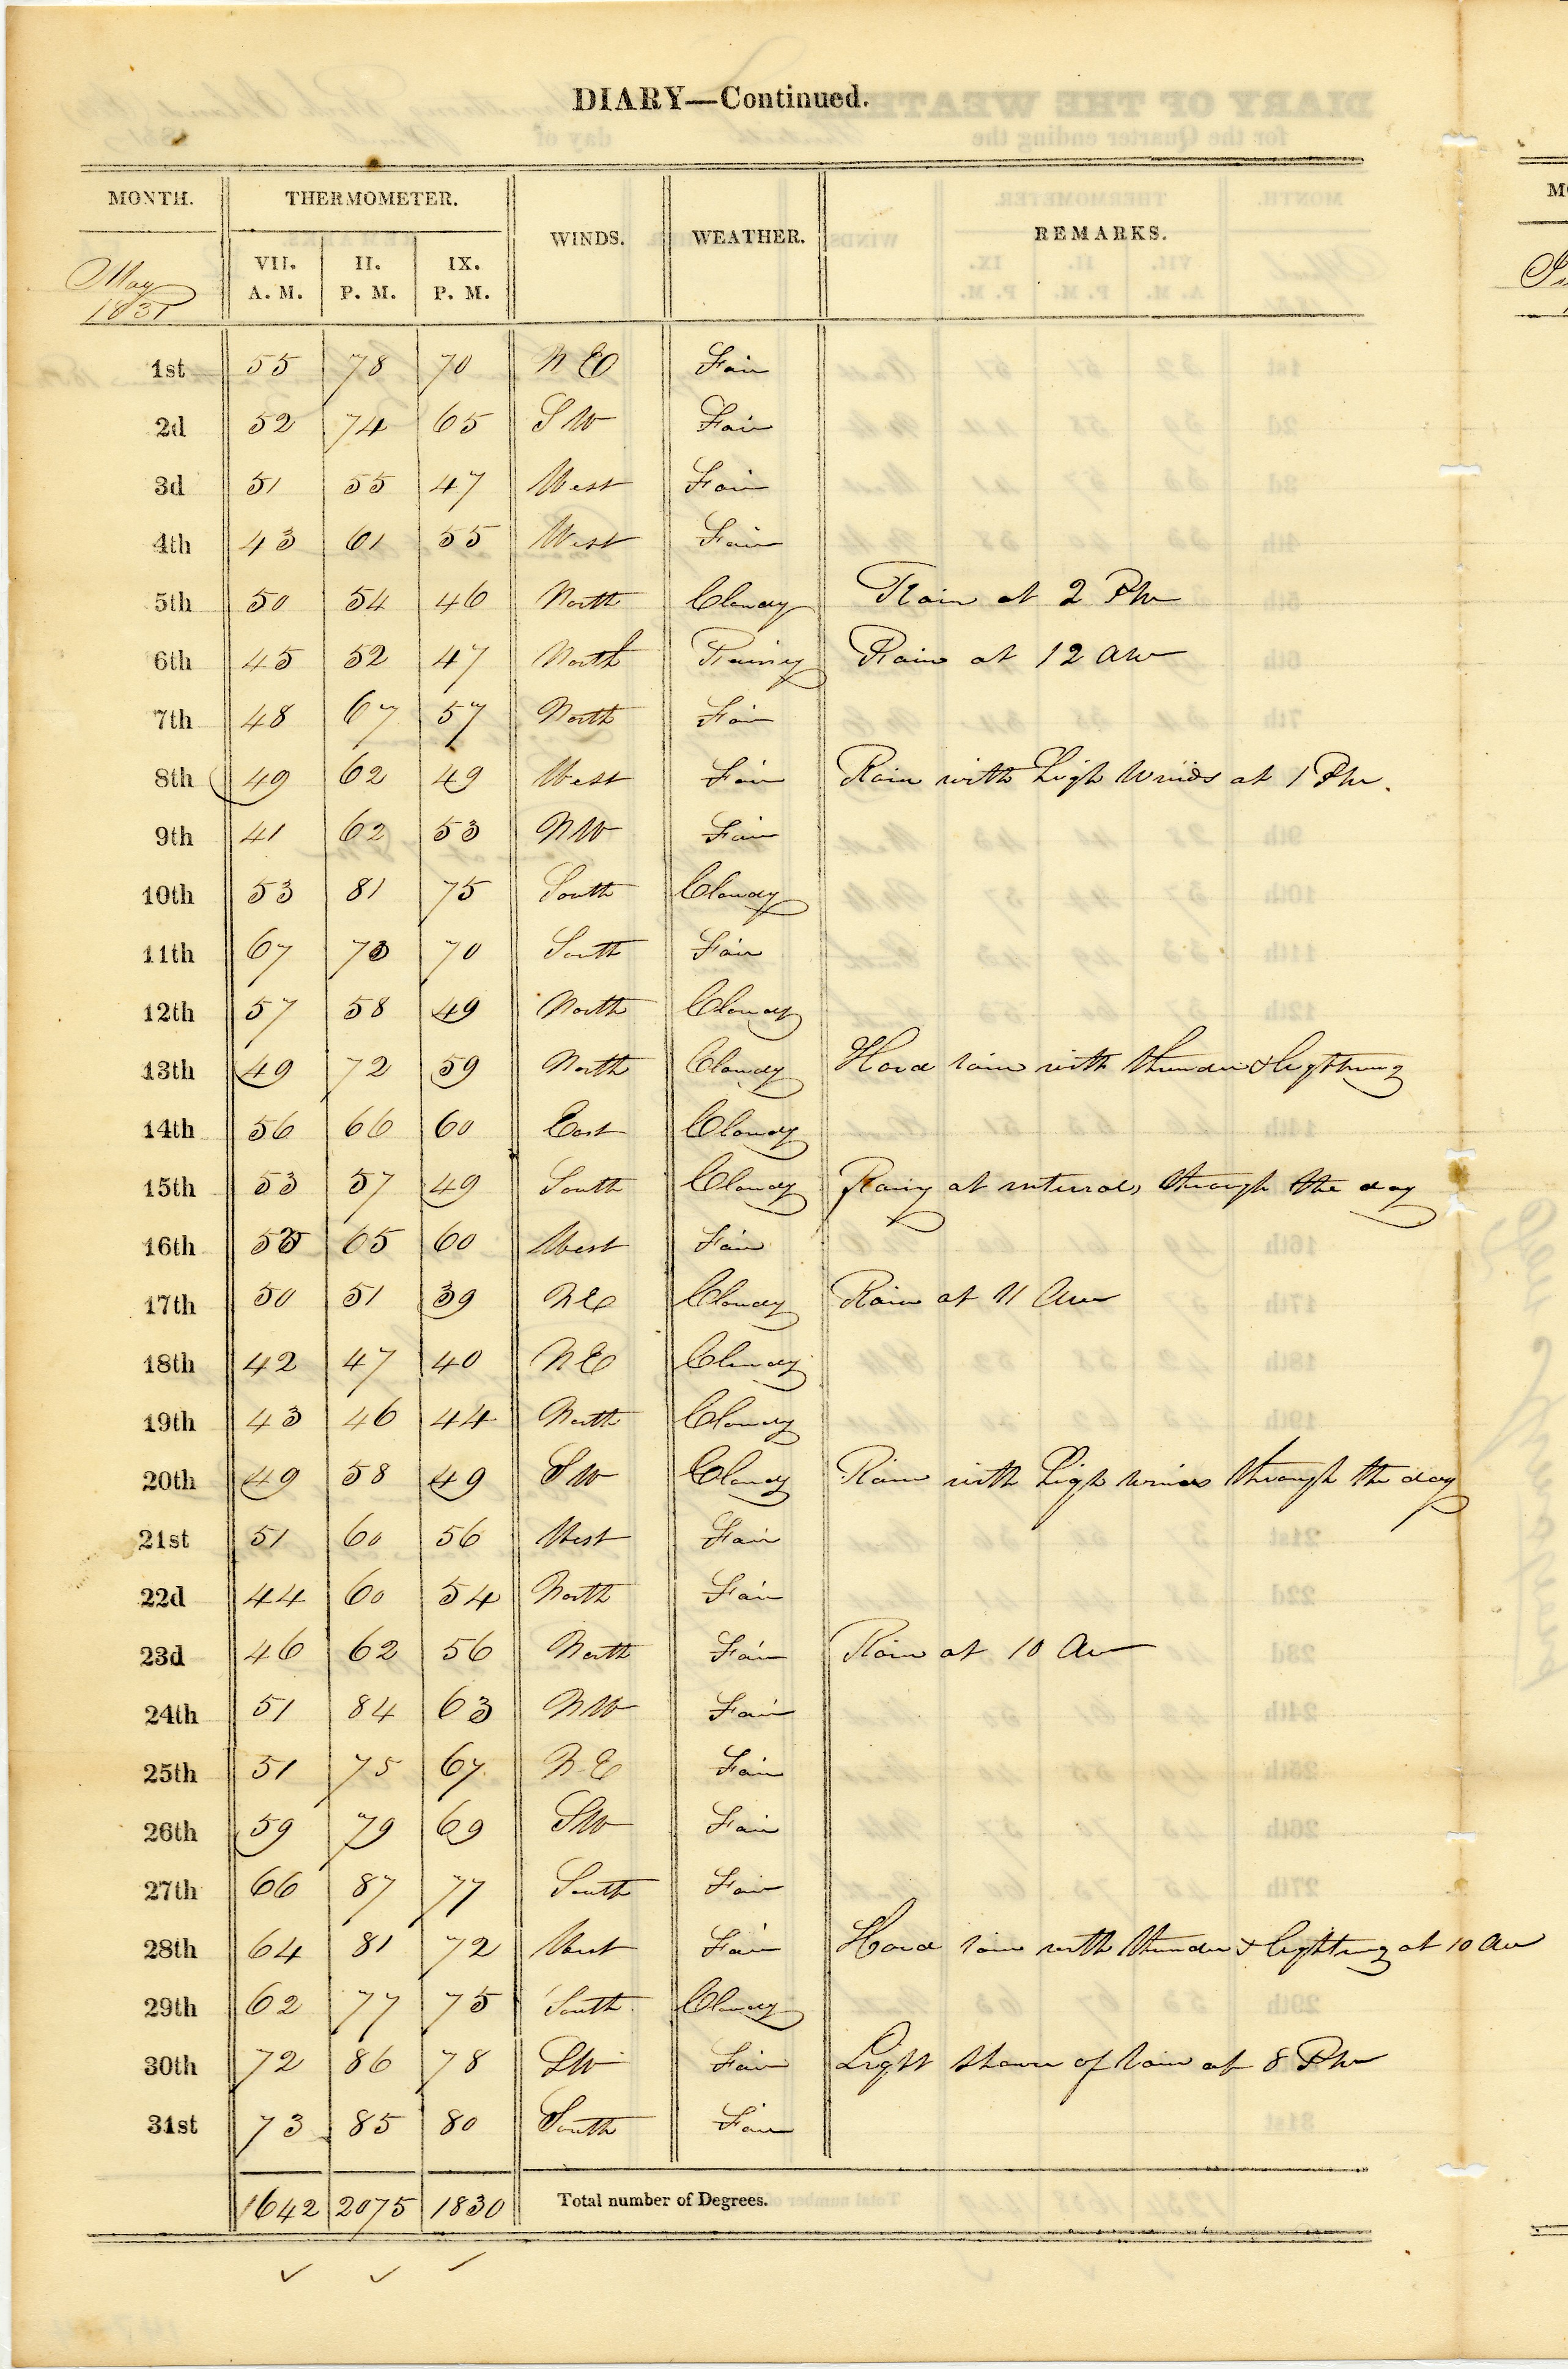 DIARY—Continued.
MONTH. THERMOMETER. WINDS. WEATHER. REMARKS.
May 1831 VII. A. M. II. P. M. IX. P. M.
1st 55 78 70 N E Fair
2d 52 74 65 S W Fair
3d 51 55 47 West Fair
4th 43 61 55 West Fair
5th 50 54 46 North Cloudy Rain at 2 PM
6th 45 52 47 North Rainy Rain at 12 AM
7th 48 67 57 North Fair
8th 49 62 49 West Fair Rain with high Winds at 1 PM.
9th 41 62 53 N W Fair
10th 53 81 75 South Cloudy
11th 67 73 70 South Fair
12th 57 58 49 North Cloudy
13th 49 72 59 North Cloudy Hard rain with thunder & lightning
14th 56 66 60 East Cloudy
15th 53 57 49 South Cloudy Rainy at intervals through the day
16th 50 65 60 West Fair
17th 50 51 39 N E Cloudy Rain at 11 AM
18th 42 47 40 N E Cloudy
19th 43 46 44 North Cloudy
20th 49 58 49 S W Cloudy Rain with high winds through the day
21st 51 60 56 West Fair
22d 44 60 54 North Fair
23d 46 62 56 North Fair Rain at 10 AM
24th 51 84 63 N W Fair
25th 51 75 67 N E Fair
26th 59 79 69 S W Fair
27th 66 87 77 South Fair
28th 64 81 72 West Fair Hard rain with thunder & lightning at 10 AM
29th 62 77 75 South Cloudy
30th 72 86 78 S W Fair Light shower of rain at 8 PM
31st 73 85 80 South Fair
1642 2075 1830 Total number of Degrees.